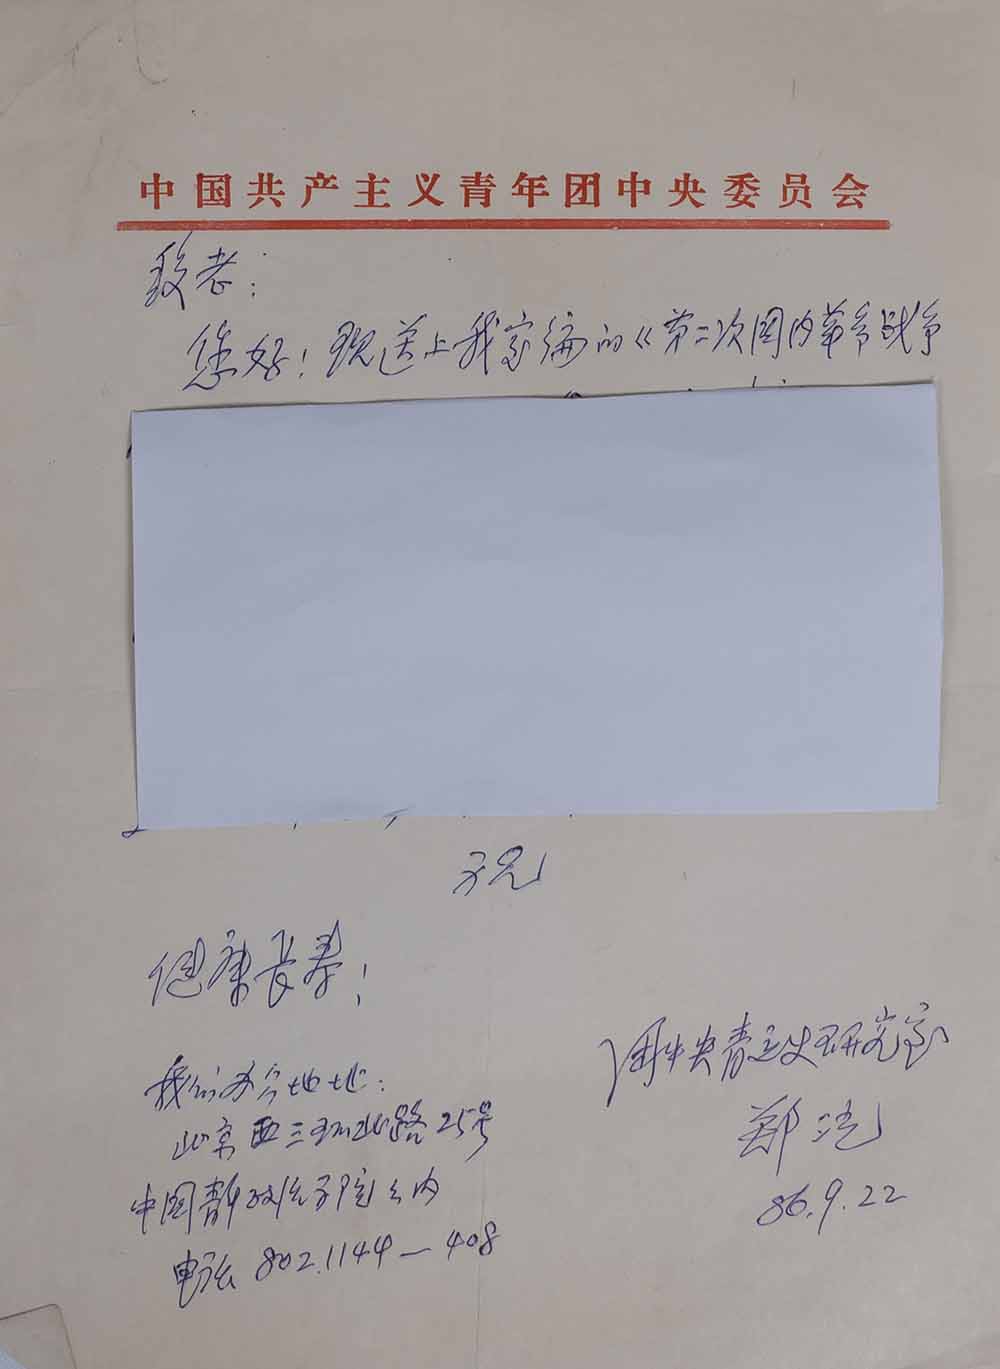 中国共产主义青年团中央委员会
段老：
您好！现送上我室编的《第二次国内革命战争
祝
健康长寿！
团中央青运史研究室
郑洸
86.9.22
我们办公地址：
北京西三环北路25号
中国青年政治学院内
电话 802.1144—408